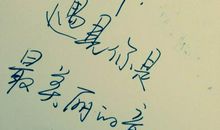 遇见你是
最美丽的意